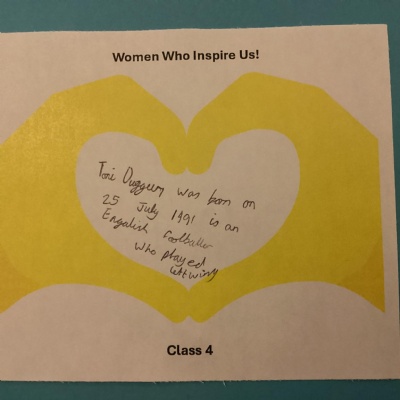 Women Who Inspire Us!
Toni Duggen was born on
25 July 1991 is an
Engalish footballer
who played
leftwing
Class 4